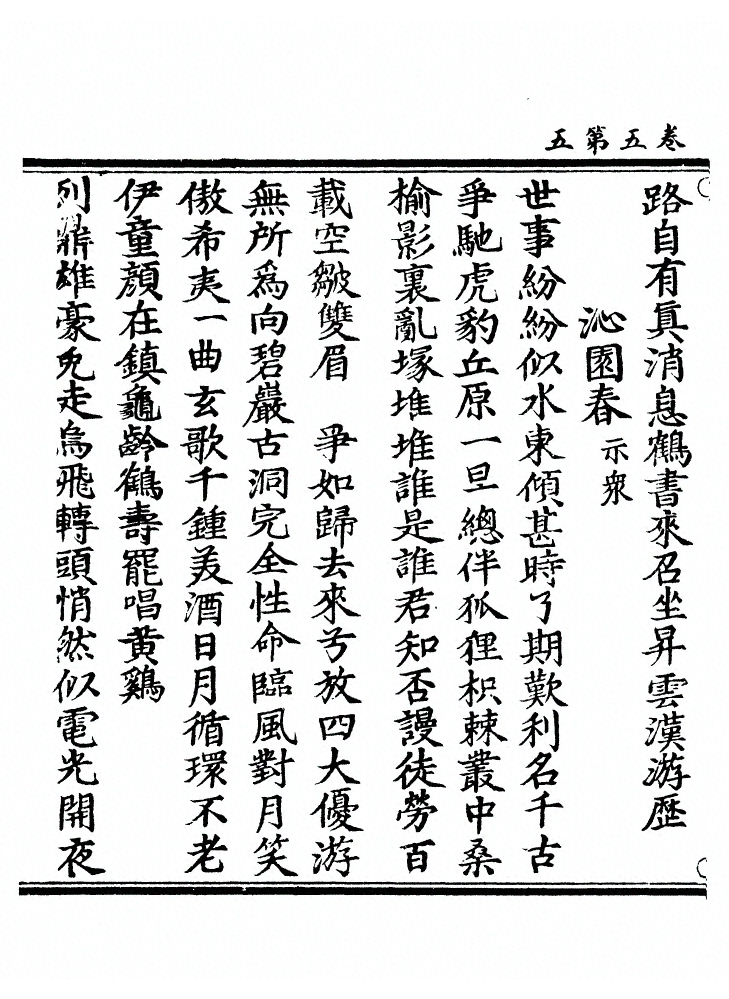 卷五第五
路自有眞消息鶴書來召坐昇雲漢游歷
沁園春 示衆
世事紛紛似水東傾甚時了期歎利名千古
爭馳虎豹丘原一旦總伴狐狸枳棘叢中桑
榆影裏亂塚堆堆誰是誰君知否謾徒勞百
載空皺雙眉　爭如歸去來兮放四大優游
無所爲向碧巖古洞完全性命臨風對月笑
傲希夷一曲玄歌千鍾美酒日月循環不老
伊童顏在鎮龜齡鶴壽罷唱黃鷄
列鼎雄豪兔走烏飛轉頭悄然似電光開夜